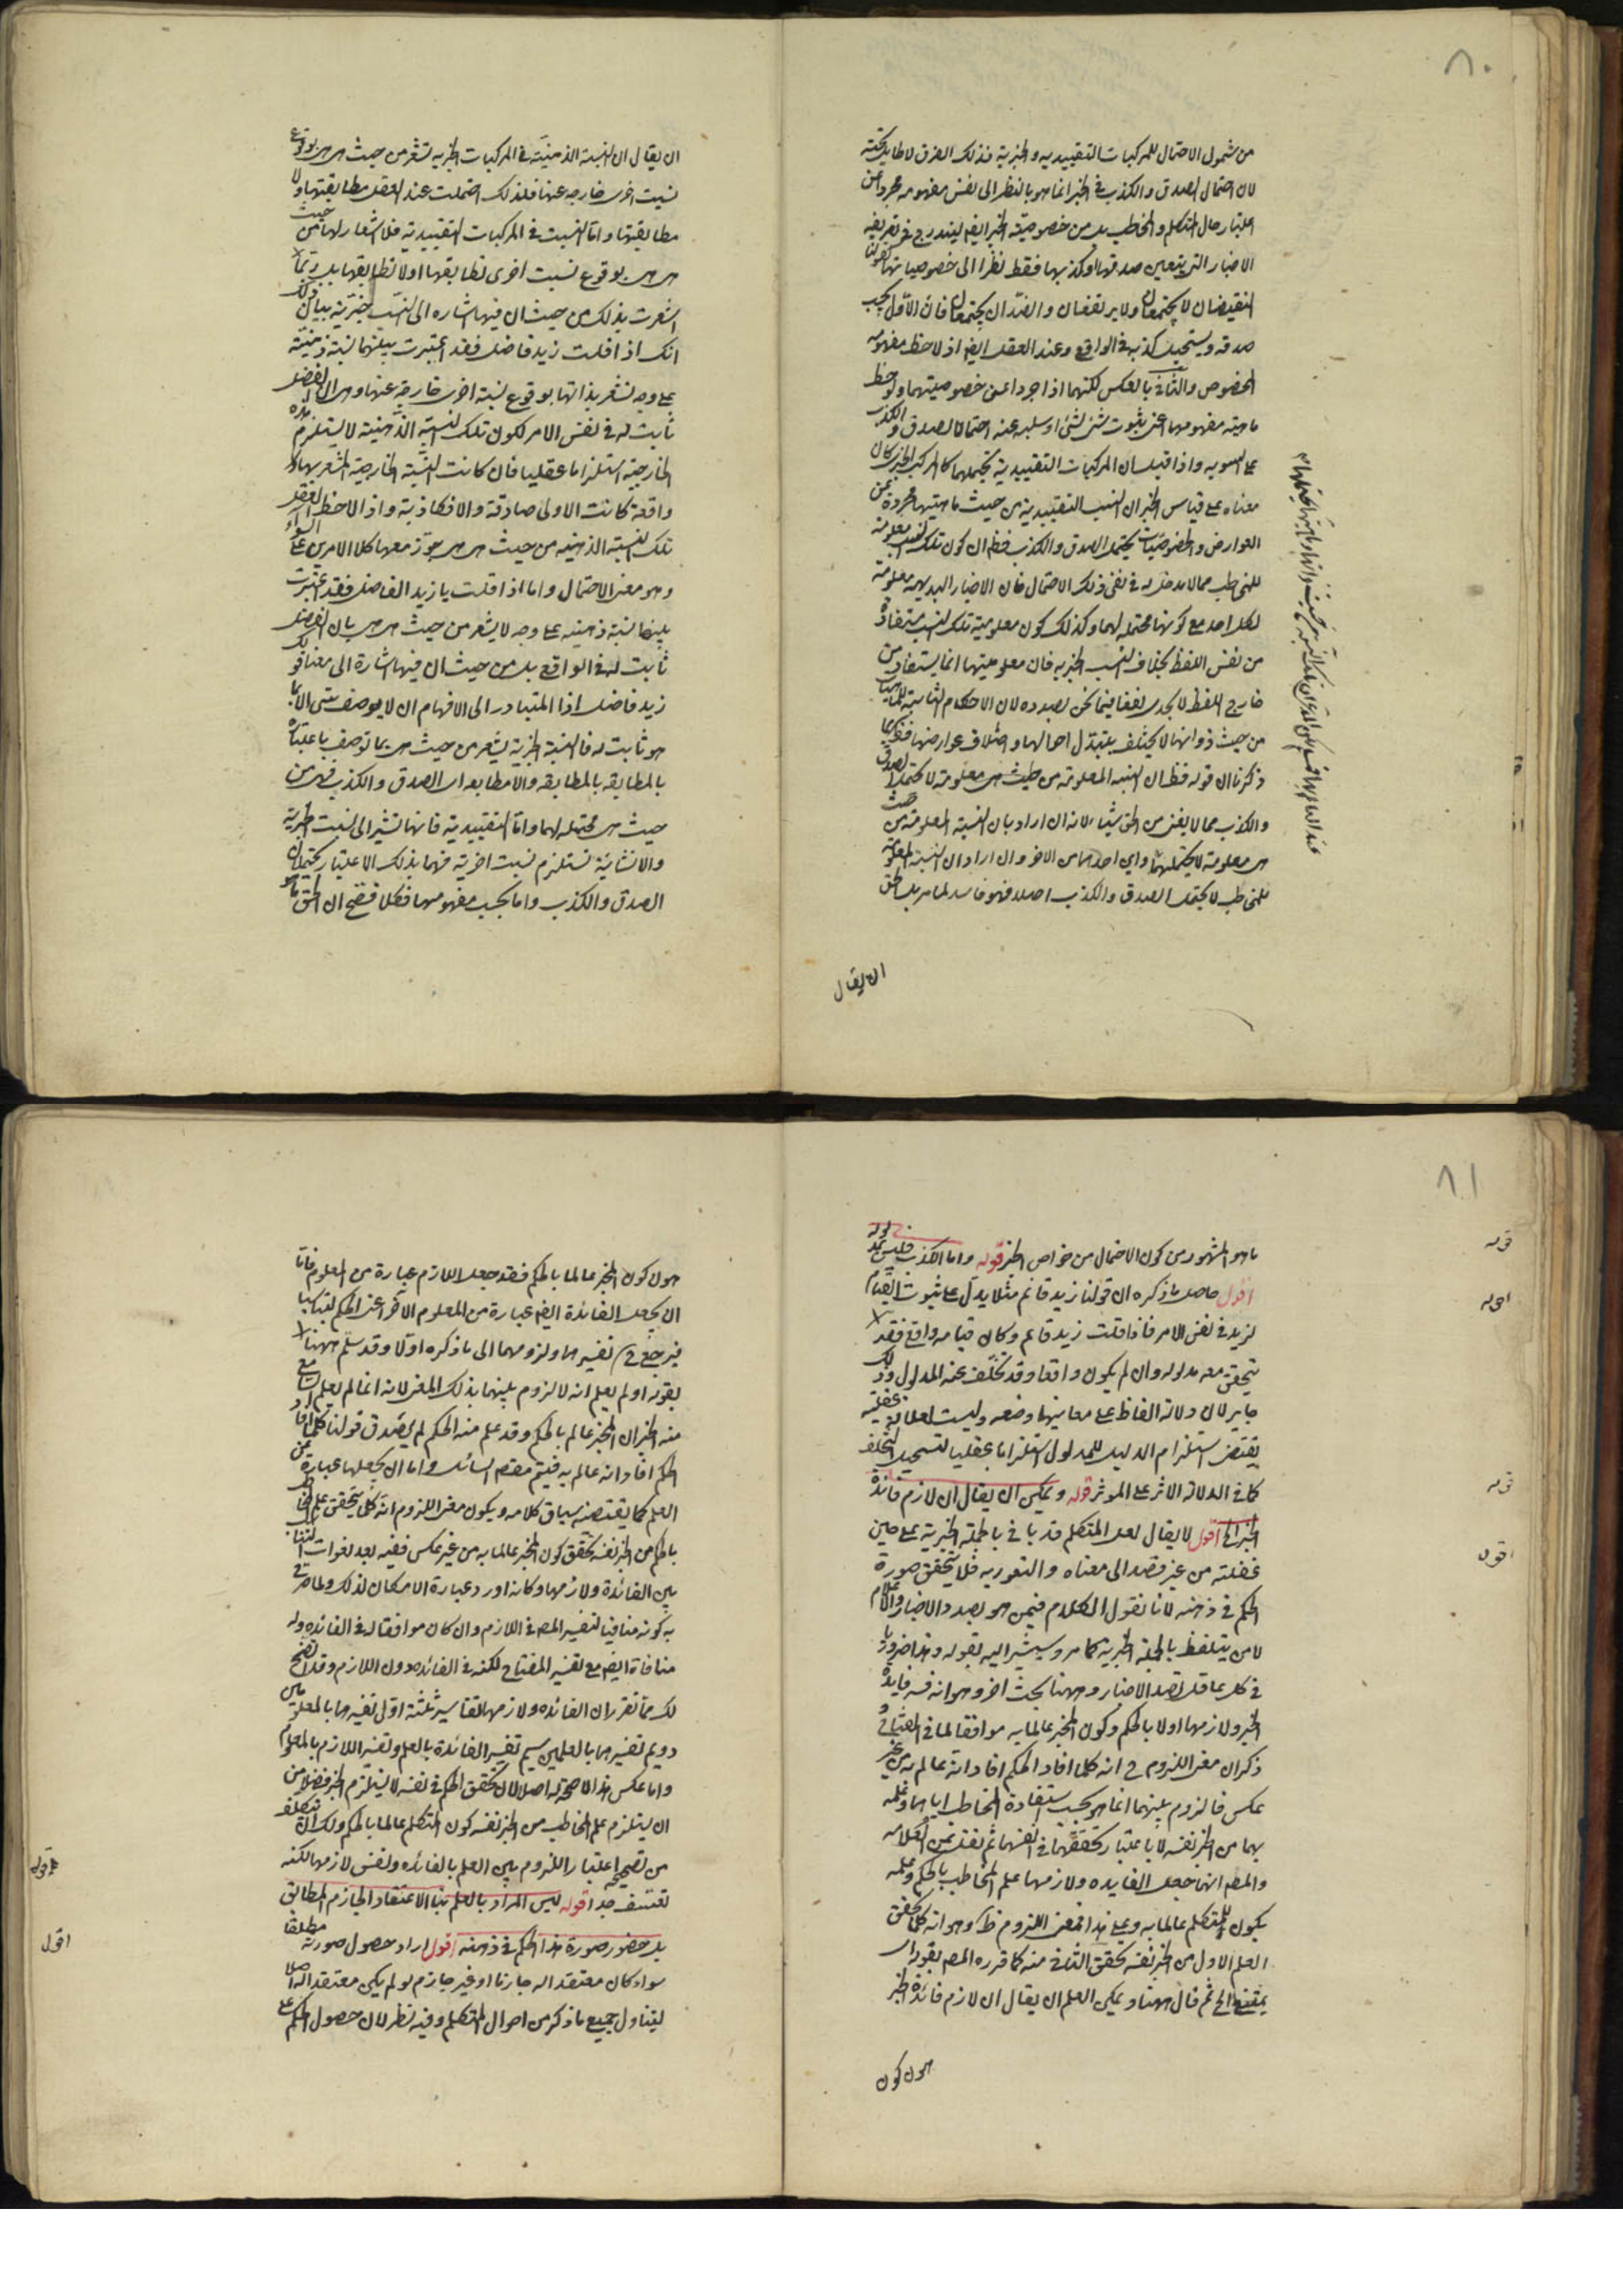 ٨٠
من شمول الاحتمال للمركبات التقييديه والخبرية فذلك الفرق لا طايل تحته
لان احتمال الصدق والكذب في الخبر انما هو بالنظر الى نفس مفهومه مجردا عن
اعتبار حال المتكلم والمخاطب بل من خصوصية الخبر ايضا ليندرج في تعريفه
الاخبار التي يتعين صدقها او كذبها فقط نظرا الى خصوصياتها كقولنا
النقيضان لا يجتمعان ولا يرتفعان والضدان يجتمعان فان الاول يجب
صدقه ويستحيل كذبه في الواقع وعند العقل ايضا اذ لاحظ مفهومه
المخصوص والثاني بالعكس لكنهما اذا جردا عن خصوصيتهما ولوحظ
ماهية مفهومهما اعني ثبوت شئ لشئ او سلبه عنه احتملا الصدق والكذب
على السويه واذا قيل ان المركبات التقييدية تحتملهما كالمركب الخبري كان
معناه على قياس الخبر ان النسب التقييدية من حيث ماهيتها مجردة عن
العوارض والخصوصيات يحتمل الصدق والكذب فظ ان كون تلك النسب معلومة
للمخاطب مما لا مدخل له في نفي ذلك الاحتمال فان الاخبار البديهيه معلومة
لكل احد مع كونها محتمله لهما وكذلك كون معلومية تلك النسب مستفادة
من نفس اللفظ بخلاف النسب الخبريه فان معلوميتها انما يستفاد من
خارج اللفظ لا يجدي نفعا فيما نحن بصدده لان الاحكام الثابتة للماهيات
من حيث ذواتها لا يختلف بتبدل احوالها واختلاف عوارضها فظهر بما
ذكرنا ان قوله فظ ان النسبه المعلومة من حيث هي معلومة لا تحتمل الصدق
والكذب مما لا يغني من الحق شيئا لانه ان اراد بان النسبة المعلومة من حيث
هي معلومة لا يحتملهما واي احدهما من الاخر وان اراد ان النسبة المعلومة
للمخاطب لا يحتمل الصدق والكذب اصلا فهو فاسد لما مر بل الحق
ان يقال
ان يقال ان النسبة الذهنية في المركبات الخبريه تشعر من حيث هي هي بوقوع
نسبت اخرى خارجه عنها فلذلك احتملت عند العقل مطابقتها ولا
مطابقتها واما النسبت في المركبات التقييدية فلا اشعار لها من حيث
هي هي بوقوع نسبت اخرى تطابقها او لا تطابقها بل ربما
اشعرت بذلك من حيث ان فيها اشاره الى النسب خبرية بيان ذلك
انك اذا قلت زيد فاضل فقد اعتبرت بينهما نسبة ذهنية
على وجه تشعر بذاتها بوقوع نسبة اخرى خارجة عنها وهي ان الفضل
ثابت له في نفس الامر لكون تلك النسبة الذهنية لا يستلزم هذه
الخارجية استلزاما عقليا فان كانت النسبة الخارجية المشعر بها
واقعة كانت الاولى صادقة والا فكاذبة واذا لاحظ العقل
تلك النسبة الذهنيه من حيث هي هي جوز معها كلا الامرين على السواء
وهو معنى الاحتمال واما اذا قلت يا زيد الفاضل فقد اعتبرت
بينهما نسبة ذهنيه على وجه لا يشعر من حيث هي هي بان الفضل
ثابت له في الواقع بل من حيث ان فيها اشارة الى معنى قولك
زيد فاضل اذا المتبادر الى الافهام ان لا يوصف شئ الا بما
هو ثابت له فالنسبة الخبرية يشعر من حيث هي بما توصف باعتباره
بالمطابقه والامطابقه اي الصدق والكذب فهي من
حيث هي محتمله لهما واما التقييدية فانها تشير الى نسبت الخبرية
والانشائية تستلزم نسبت اخرية فهما بذلك الاعتبار يحتملان
الصدق والكذب واما بحسب مفهومهما فكلا فتضح ان الحق ما هو
٨١
ما هو المشهور من كون الاحتمال من خواص الخبر قوله واما الكذب فليس بمدلوله
اقول حاصل ما ذكره ان قولنا زيد قائم مثلا يدل على ثبوت القيام
لزيد في نفس الامر فاذا قلت زيد قائم وكان قيامه واقع فقد
يتحقق معه مدلوله وان لم يكون واقعا وقد تخلف عنه المدلول وذلك
جايز لان دلالة الفاظ على معانيها وضعيه وليست لعلاقة عقلية
يقتضي استلزام الدليل للمدلول استلزاما عقليا لتستحيل التخلف
كما في الدلالة الاثر على الموثر قوله ويمكن ان يقال ان لازم فائدة
الخبر الخ اقول لا يقال لعل المتكلم قد ياتي بالجملة الخبرية على حين
غفلته من غير قصد الى معناه والتصوريه فلا يتحقق صورة
الحكم في ذهنه لانا نقول الكلام فيمن هو بصدد الاخبار والاعلام
لا من يتلفظ بالجملة الخبرية كما مر وسيشير اليه بقوله وهذا ضروريا
في كل عاقل تصد الاخبار وههنا بحث اخر وهو انه فسر فايدة
الخبر ولازمها اولا بالحكم وكون المخبر عالما به موافقا لما في المفتاح
ذكر ان معنى اللزوم ح انه كلما افاد الحكم افاد انه عالم به من غير
عكس فالزوم بينهما انما هو بحسب استفادة المخاطب اياهما وعلمه
بهما من الخبر نفسه لا باعتبار تحققهما في انفسهما ثم نقل عن العلامه
والمص انهما جعل الفايده ولازمها علم المخاطب بالحكم وعلمه
بكون المتكلم عالما به وعلى هذا فمعنى اللزوم ظ وهو انه كلما تحقق
العلم الاول من الخبر نفسه تحقق الثاني منه كما قرره المص بقوله اي
يمتنع الخ ثم قال ههنا ويمكن العلم ان يقال ان لازم فائدة الخبر
هون كون
قوله
اقول
قوله
اقول
هون كون المخبر عالما بالحكم فقد جعل اللازم عبارة من المعلوم فاما
ان يجعل الفائدة ايضا عبارة من المعلوم الاخر اعني الحكم
فيرجع ح تفسيرهما ولزومهما الى ما ذكره اولا وقد سلم ههنا
بقوله او لم يعلم انه لا لزوم بينهما بذلك المعنى لانه انما لم يعلم السامع
منه الخبر ان المخبر عالم بالحكم وقد علم منه الحكم لم يصدق قولنا كلما افاد
الحكم افاد انه عالم به فيتم مقصد السائل واما ان يجعلها عبارة عن
العلم كما يقتضيه سياق كلامه ويكون معنى اللزوم انه كلما يتحقق علم المخاطب
بالحكم من الخبر نفسه تحقق كون المخبر عالما به من غير عكس ففيه بعد لفوات التناسب
بين الفائدة ولازمها وكانه اورد عبارة الامكان لذلك ولما مر في
به كونه منافيا لتفسير المص في اللازم وان كان موافقا له في الفائده وله
منافاة ايضا مع تفسير المفتاح لكنه في الفائده دون اللازم وقد اتضح
لك مما تقرر ان الفائده ولازمها تفاسير ثلثة اولى تفسيرهما بالمعلومين
دويم تفسيرهما بالعلمين سيم تفسير الفائدة بالعلم وتفسير اللازم بالمعلوم
واما عكس هذا لا صحة له اصلا لان تحقق الحكم في نفسه لا يستلزم الخبر فضلا من
ان يستلزم علم المخاطب من الخبر نفسه كون المتكلم عالما بالحكم ولك ان تتكلف
من تصحيحه اعتبار اللزوم بين العلم بالفائده ونفس لازمها لكنه
تعسف جدا قوله ليس المراد بالعلم هنا الاعتقاد الجازم المطابق
بل حضور صورة هذا الحكم في ذهنه اقول اراد حصول صورته مطلقا
سواء كان معتقدا له جازما او غير جازم او لم يكن معتقدا له اصلا
ليتناول جميع ما ذكر من احوال المتكلم وفيه نظر لان حصول الحكم على
قوله
اقول